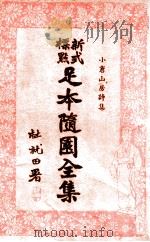 小倉山房詩集
新式標點
足本隨園全集